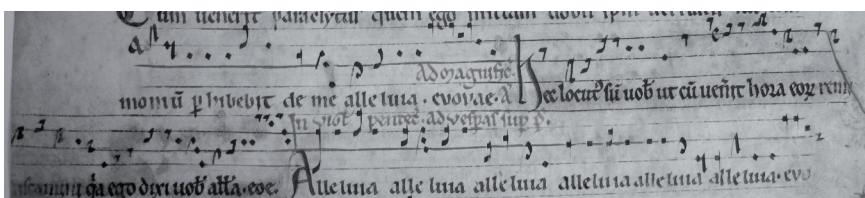 Cum uenerit paraclytus quem ego mittam uobis
Ad magnificat.
monium phibebit de me alleluia. euouae. A Hec locutus sum uobis ut cum uenerit hora eorum remi
In uigl' pentec. ad uesperas sup p̄.
niscamini q̄a ego dixi uob̄ all̄a. eoe. Alleluia alleluia alleluia alleluia alleluia alleluia. euo